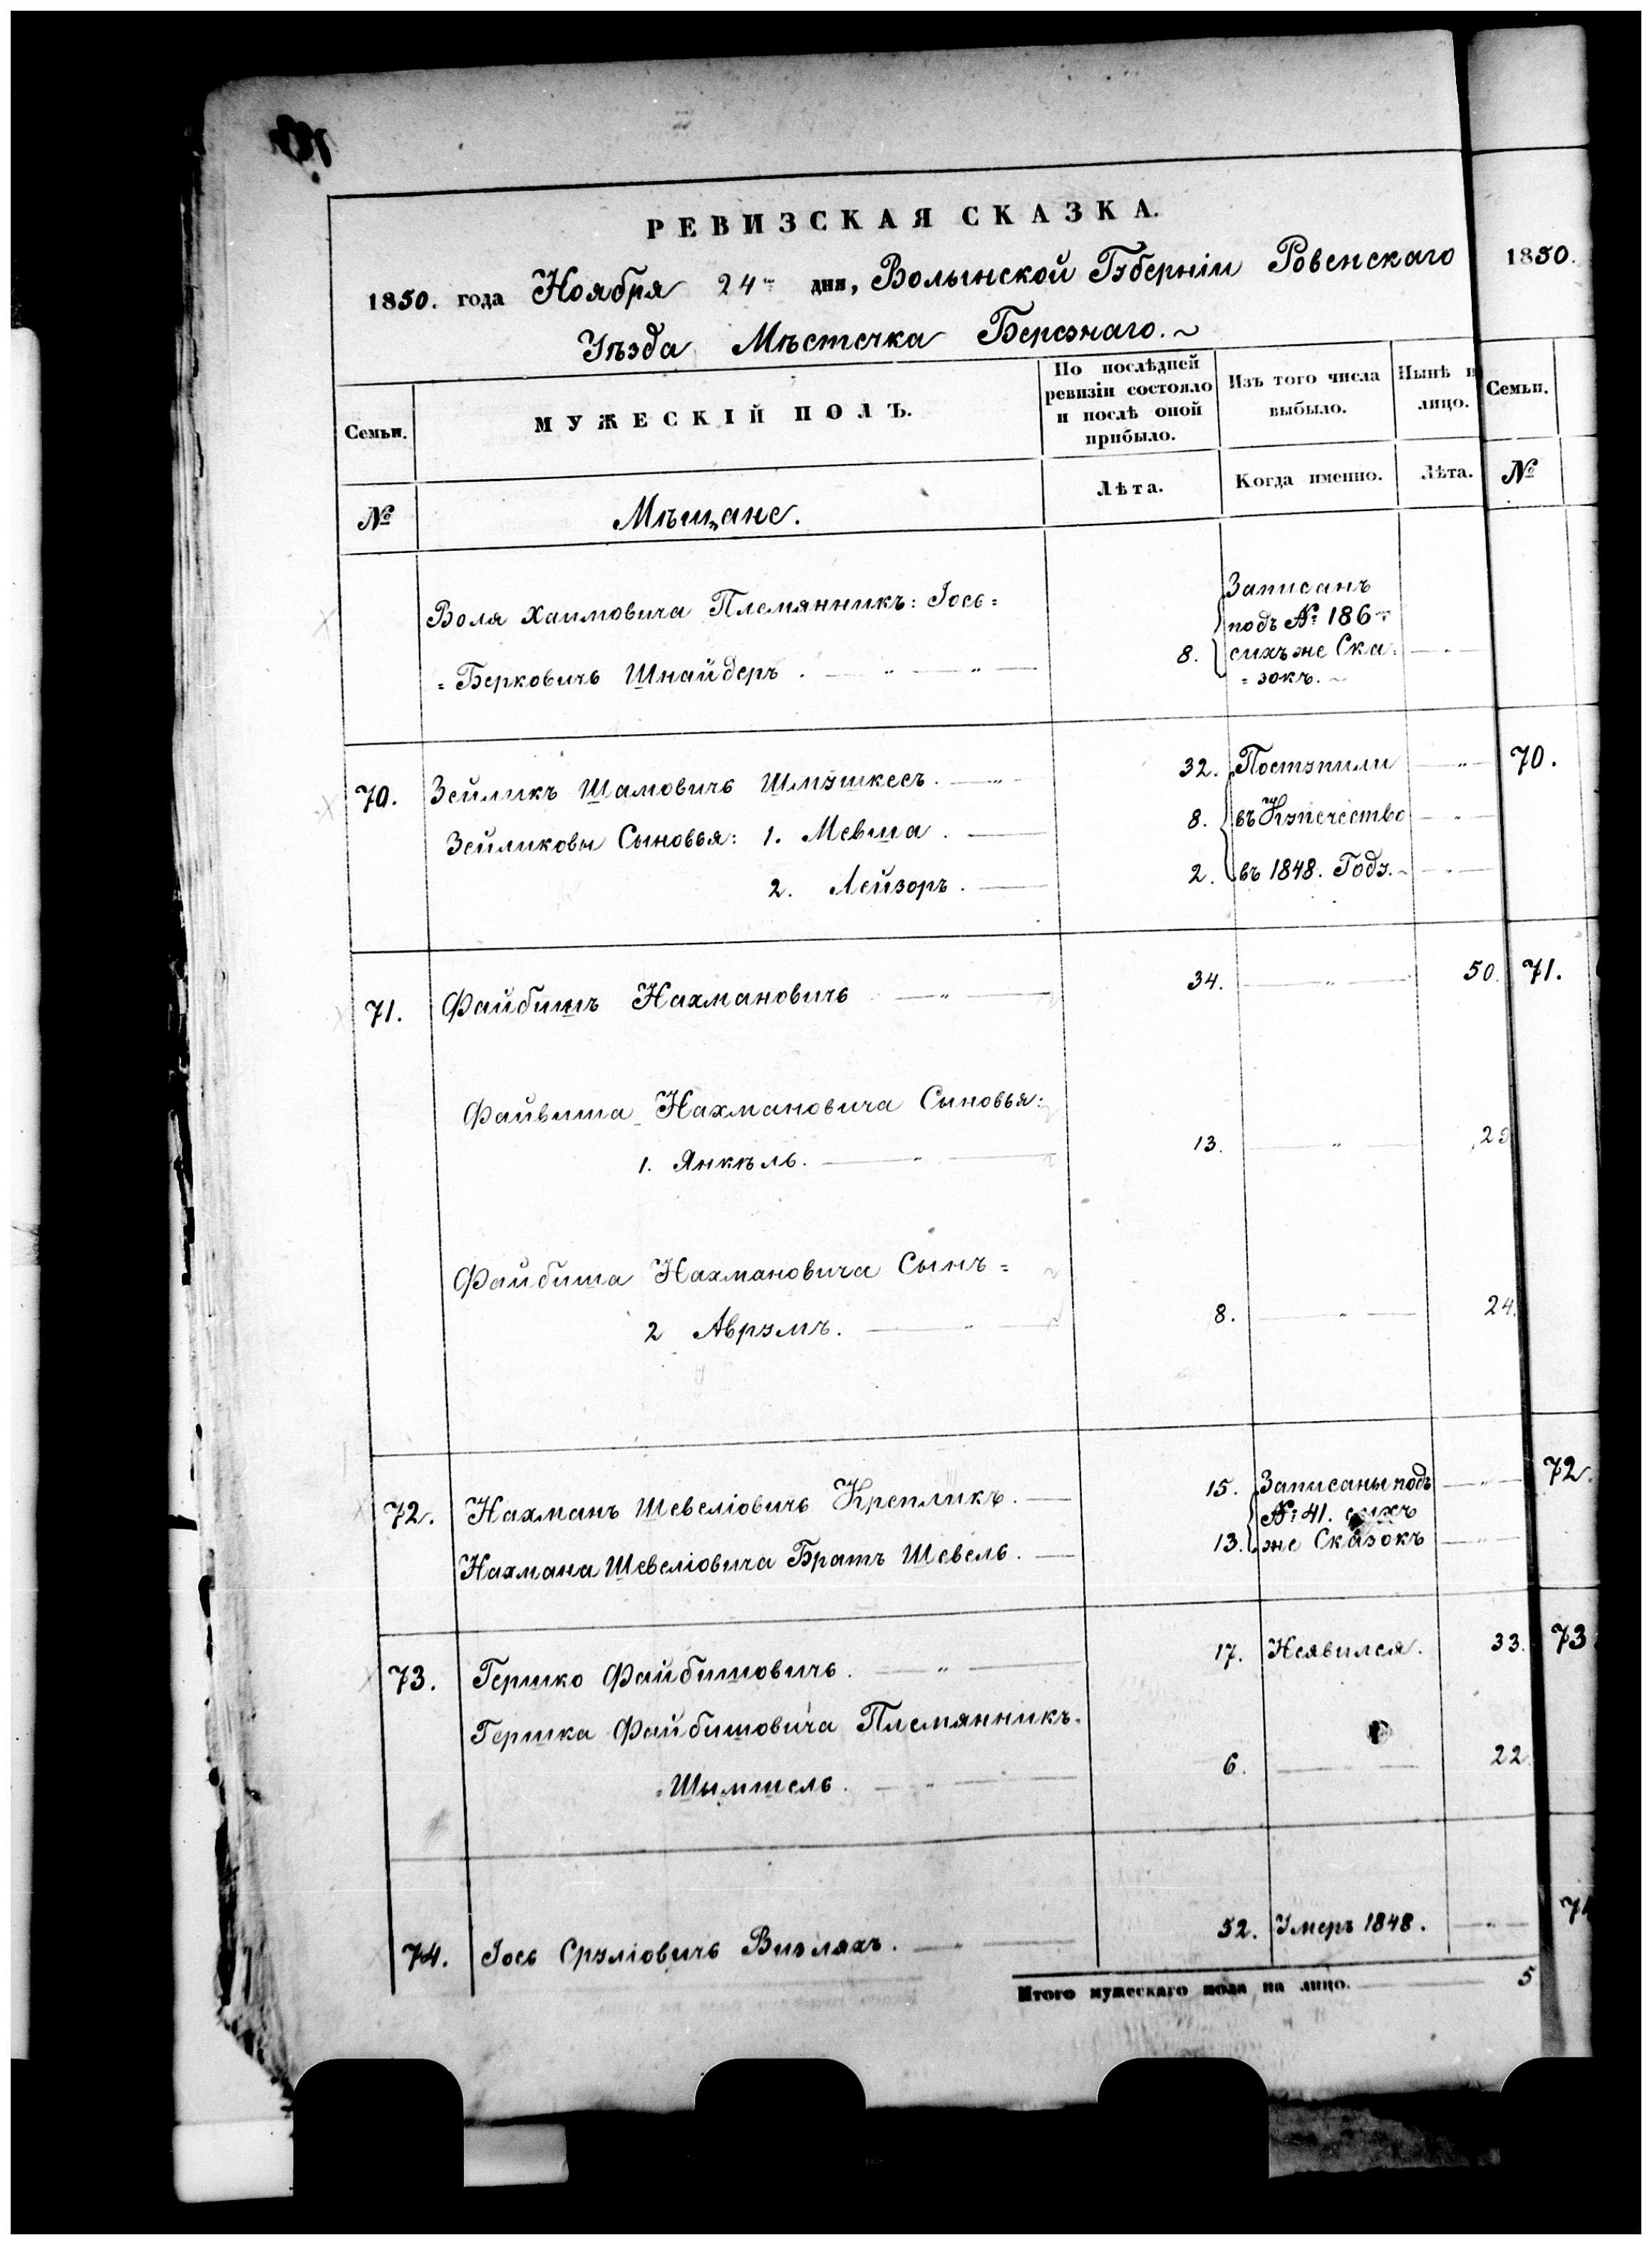 РЕВИЗСКАЯ СКАЗКА.
1850. года Ноября 24го дня, Волынской Губерніи Ровенскаго
Уѣзда Мѣстечка Березнаго.
1850.
Семьи.
МУЖЕСКІЙ ПОЛЪ.
По послѣдней ревизіи состояло и послѣ оной прибыло.
Изъ того числа выбыло.
Нынѣ н лицо.
Семьи.
№
Мѣщане.
Лѣта.
Когда именно.
Лѣта.
№
Воля Хаимовича Племянникъ: Іось=
=Берковичъ Шнайдеръ. 8.
Записанъ
подъ № 186
сихъ же Ска=
=зокъ.
70. Зейликъ Шамовичъ Шмушкесъ. 32. Поступили 70.
Зейликовы Сыновья: 1. Мевша. 8. въ Купечество
2. Лейзоръ. 2. въ 1848. Году.
71. Файбишъ Нахмановичъ 34. 50. 71.
Файвиша Нахмановича Сыновья:
1. Янкѣль. 13. 29
Файбиша Нахмановича Сынъ=
2 Аврумъ. 8. 24.
72. Нахманъ Шевеліовичъ Крепликъ. 15. Записаны подъ 72.
№ 41. сихъ
Нахмана Шевеліовича Братъ Шевель. 13. же Сказокъ
73. Гершко Файбишовичъ. 17. Неявился. 33. 73
Гершка Файбишовича Племянникъ=
=Шимшель. 6. 22
74. Іось Сруліовичъ Визляхъ. 52. Умеръ 1848. 74
Итого мужескаго пола на лицо. 5